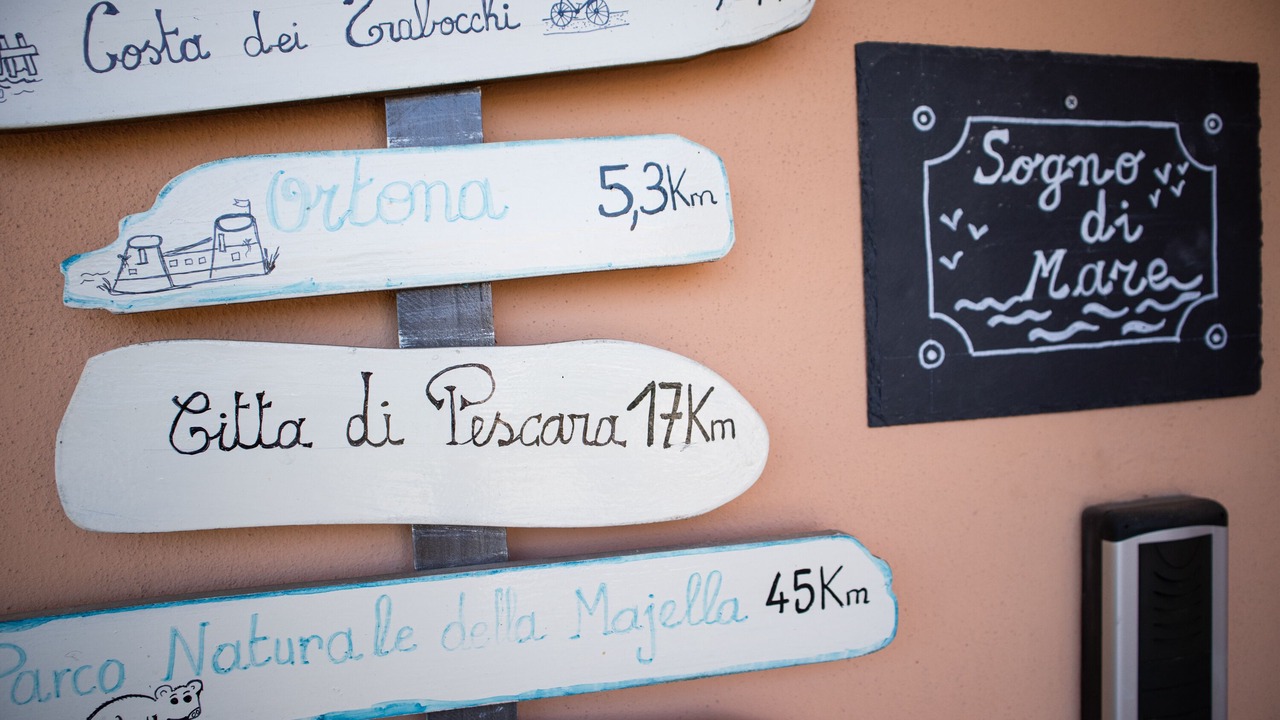 Costa dei Trabocchi
Ortona 5,3Km
Citta di Pescara 17Km
Parco Naturale della Majella 45Km
Sogno
di
Mare